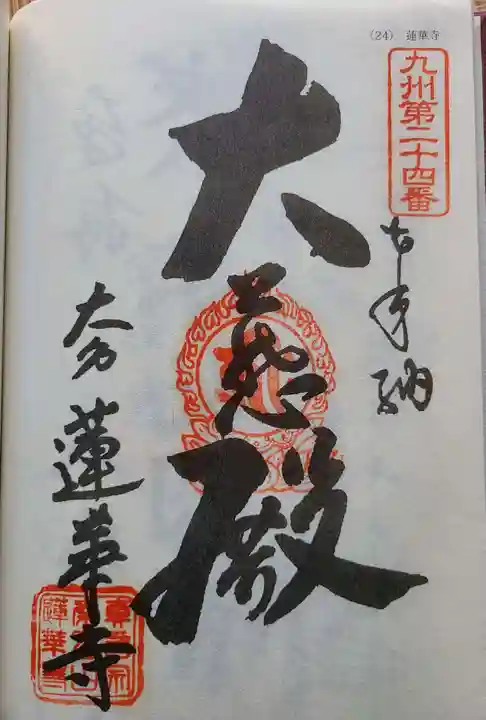 （24）　蓮華寺
九州第二十四番
奉納
大悲殿
大分
蓮華寺